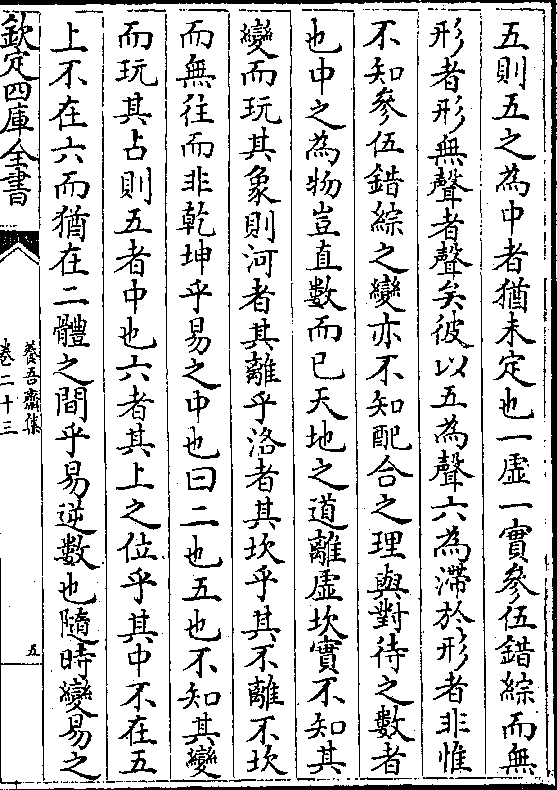 五則五之為中者猶未定也一虛一實參伍錯綜而無
形者形無聲者聲矣彼以五為聲六為滯於形者非惟
不知參伍錯綜之變亦不知配合之理與對待之數者
也中之為物豈直數而已天地之道離虛坎實不知其
變而玩其象則河者其離乎洛者其坎乎其不離不坎
而無往而非乾坤乎易之中也曰二也五也不知其變
而玩其占則五者中也六者其上之位乎其中不在五
上不在六而猶在二體之間乎易逆數也隨時變易之
欽定四庫全書
養吾齋集
卷二十三
五